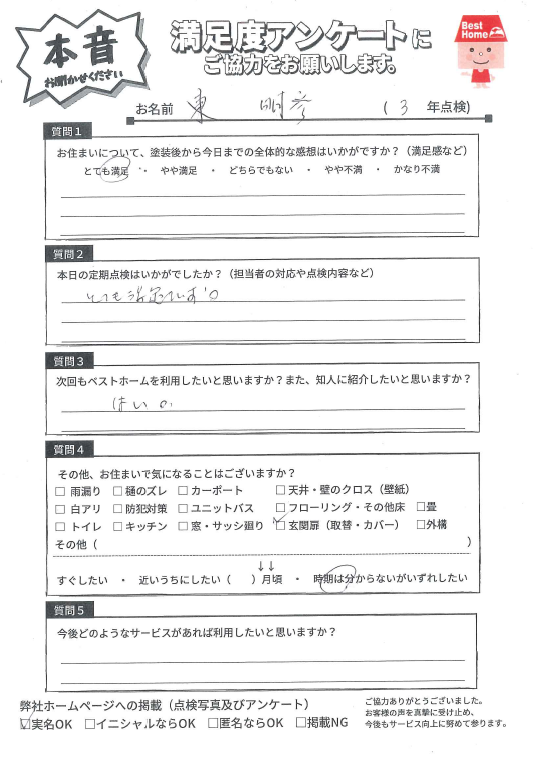 本音
お聞かせください
満足度アンケートに
ご協力をお願いします。
Best Home
お名前 東 明彦 ( 3 年点検)
質問1
お住まいについて、塗装後から今日までの全体的な感想はいかがですか？（満足感など）
とても満足 ・ やや満足 ・ どちらでもない ・ やや不満 ・ かなり不満
質問2
本日の定期点検はいかがでしたか？（担当者の対応や点検内容など）
とても満足です。
質問3
次回もベストホームを利用したいと思いますか？また、知人に紹介したいと思いますか？
はい。
質問4
その他、お住まいで気になることはございますか？
□ 雨漏り □ 樋のズレ □ カーポート □ 天井・壁のクロス（壁紙）
□ 白アリ □ 防犯対策 □ ユニットバス □ フローリング・その他床 □畳
□ トイレ □ キッチン □ 窓・サッシ廻り ☑ 玄関扉（取替・カバー） □外構
その他（ ）
↓↓
すぐしたい ・ 近いうちにしたい（ ）月頃 ・ 時期は分からないがいずれしたい
質問5
今後どのようなサービスがあれば利用したいと思いますか？
弊社ホームページへの掲載（点検写真及びアンケート）
☑実名OK □イニシャルならOK □匿名ならOK □掲載NG
ご協力ありがとうございました。
お客様の声を真摯に受け止め、
今後もサービス向上に努めて参ります。